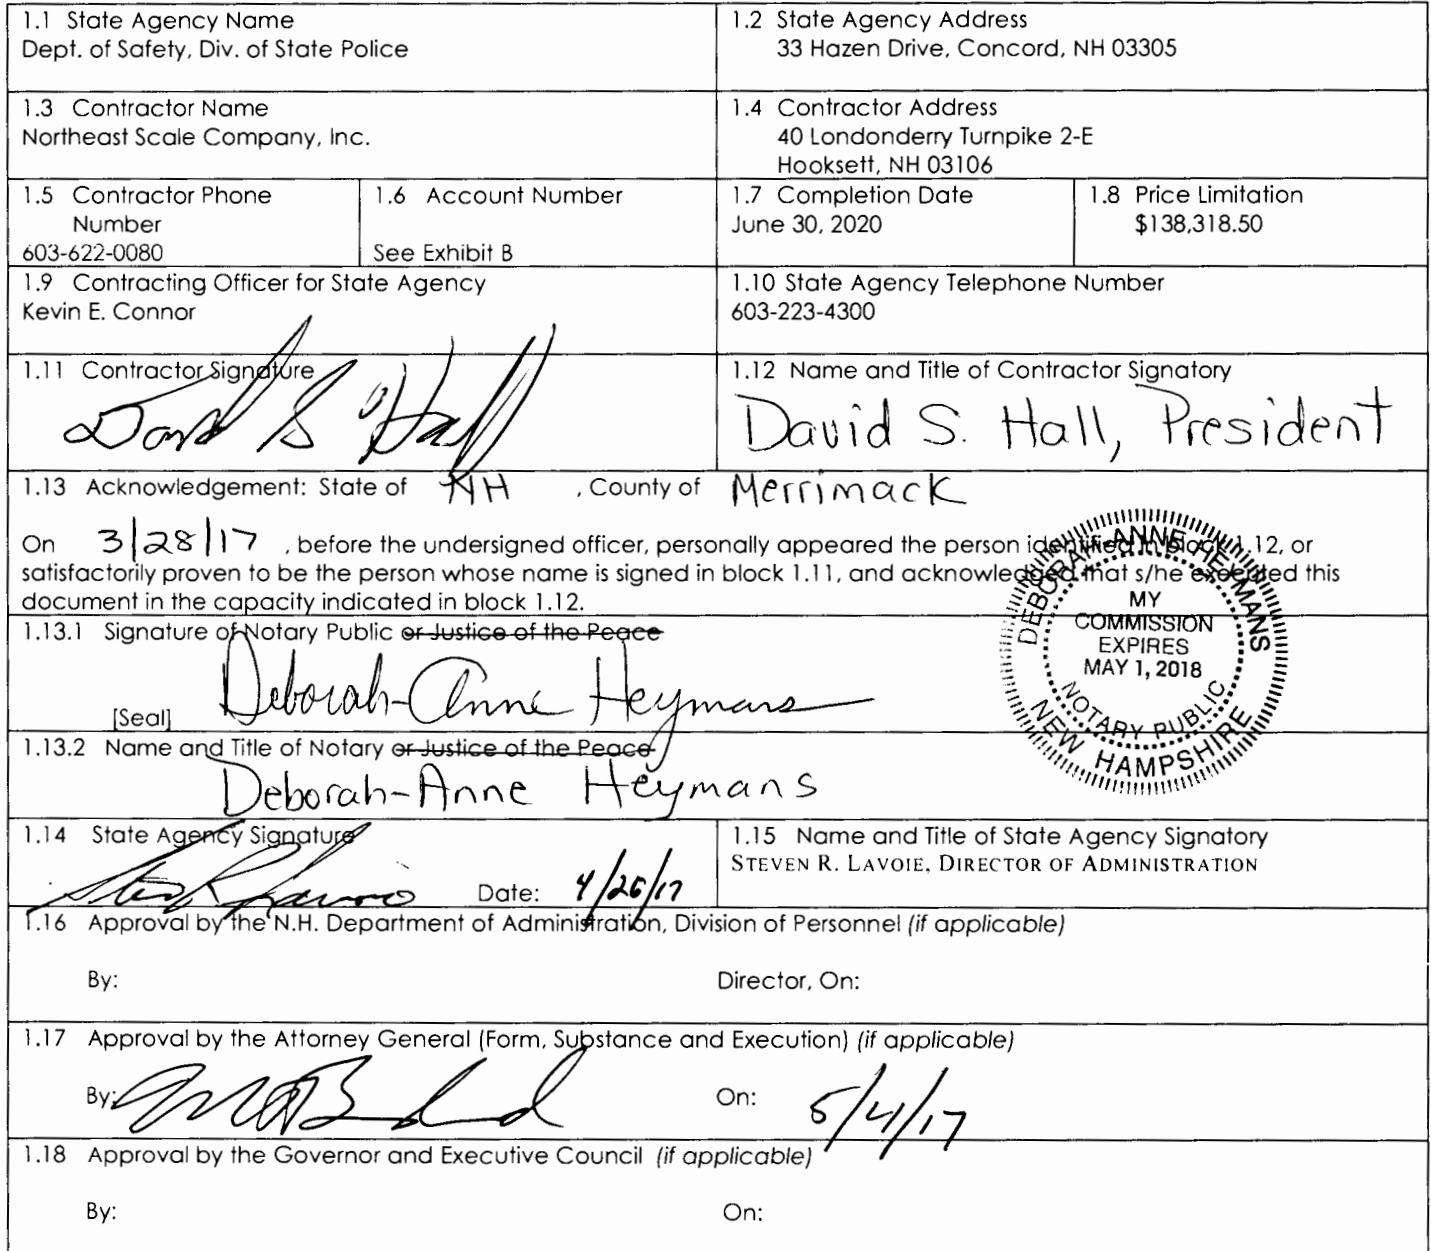 1.1 State Agency Name
Dept. of Safety, Div. of State Police
1.2 State Agency Address
33 Hazen Drive, Concord, NH 03305
1.3 Contractor Name
Northeast Scale Company, Inc.
1.4 Contractor Address
40 Londonderry Turnpike 2-E
Hooksett, NH 03106
1.5 Contractor Phone
Number
603-622-0080
1.6 Account Number
See Exhibit B
1.7 Completion Date
June 30, 2020
1.8 Price Limitation
$138,318.50
1.9 Contracting Officer for State Agency
Kevin E. Connor
1.10 State Agency Telephone Number
603-223-4300
1.11 Contractor Signature
David S Hall
1.12 Name and Title of Contractor Signatory
David S. Hall, President
1.13 Acknowledgement: State of NH , County of Merrimack
On 3/28/17 , before the undersigned officer, personally appeared the person identified in block 1.12, or
satisfactorily proven to be the person whose name is signed in block 1.11, and acknowledged that s/he executed this
document in the capacity indicated in block 1.12.
1.13.1 Signature of Notary Public or Justice of the Peace
Deborah-Anne Heymans
[Seal]
DEBORAH ANNE HEYMANS
MY
COMMISSION
EXPIRES
MAY 1, 2018
NOTARY PUBLIC
NEW HAMPSHIRE
1.13.2 Name and Title of Notary or Justice of the Peace
Deborah-Anne Heymans
1.14 State Agency Signature
Date:
1.15 Name and Title of State Agency Signatory
STEVEN R. LAVOIE, DIRECTOR OF ADMINISTRATION
1.16 Approval by the N.H. Department of Administration, Division of Personnel (if applicable)
By: Director, On:
1.17 Approval by the Attorney General (Form, Substance and Execution) (if applicable)
By: On: 5/4/17
1.18 Approval by the Governor and Executive Council (if applicable)
By: On: